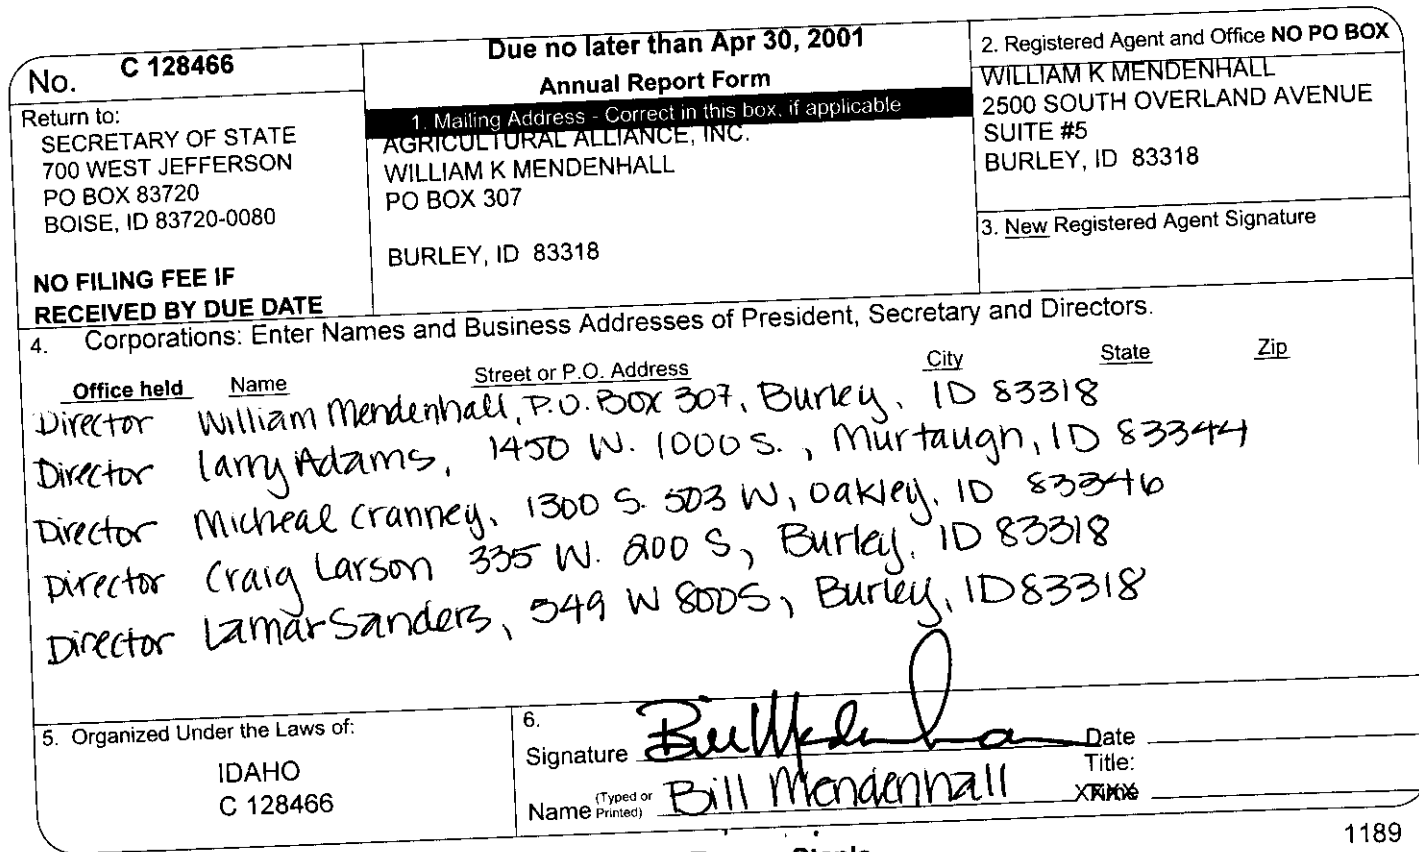 No. C 128466
Return to:
SECRETARY OF STATE
700 WEST JEFFERSON
PO BOX 83720
BOISE, ID 83720-0080
NO FILING FEE IF
RECEIVED BY DUE DATE
Due no later than Apr 30, 2001
Annual Report Form
1. Mailing Address - Correct in this box, if applicable
AGRICULTURAL ALLIANCE, INC.
WILLIAM K MENDENHALL
PO BOX 307
BURLEY, ID 83318
2. Registered Agent and Office NO PO BOX
WILLIAM K MENDENHALL
2500 SOUTH OVERLAND AVENUE
SUITE #5
BURLEY, ID 83318
3. New Registered Agent Signature
4. Corporations: Enter Names and Business Addresses of President, Secretary and Directors.
Office held Name Street or P.O. Address City State Zip
Director William Mendenhall, P.O. Box 307, Burley, ID 83318
Director Larry Adams, 1450 W. 1000 S., Murtaugh, ID 83344
Director Micheal Cranney, 1300 S. 503 W, Oakley, ID 83346
Director Craig Larson 335 W. 200 S, Burley, ID 83318
Director Lamar Sanders, 549 W 800 S, Burley, ID 83318
5. Organized Under the Laws of:
IDAHO
C 128466
6.
Signature Bill Mendenhall Date
Title:
Name (Typed or Printed) Bill Mendenhall
1189